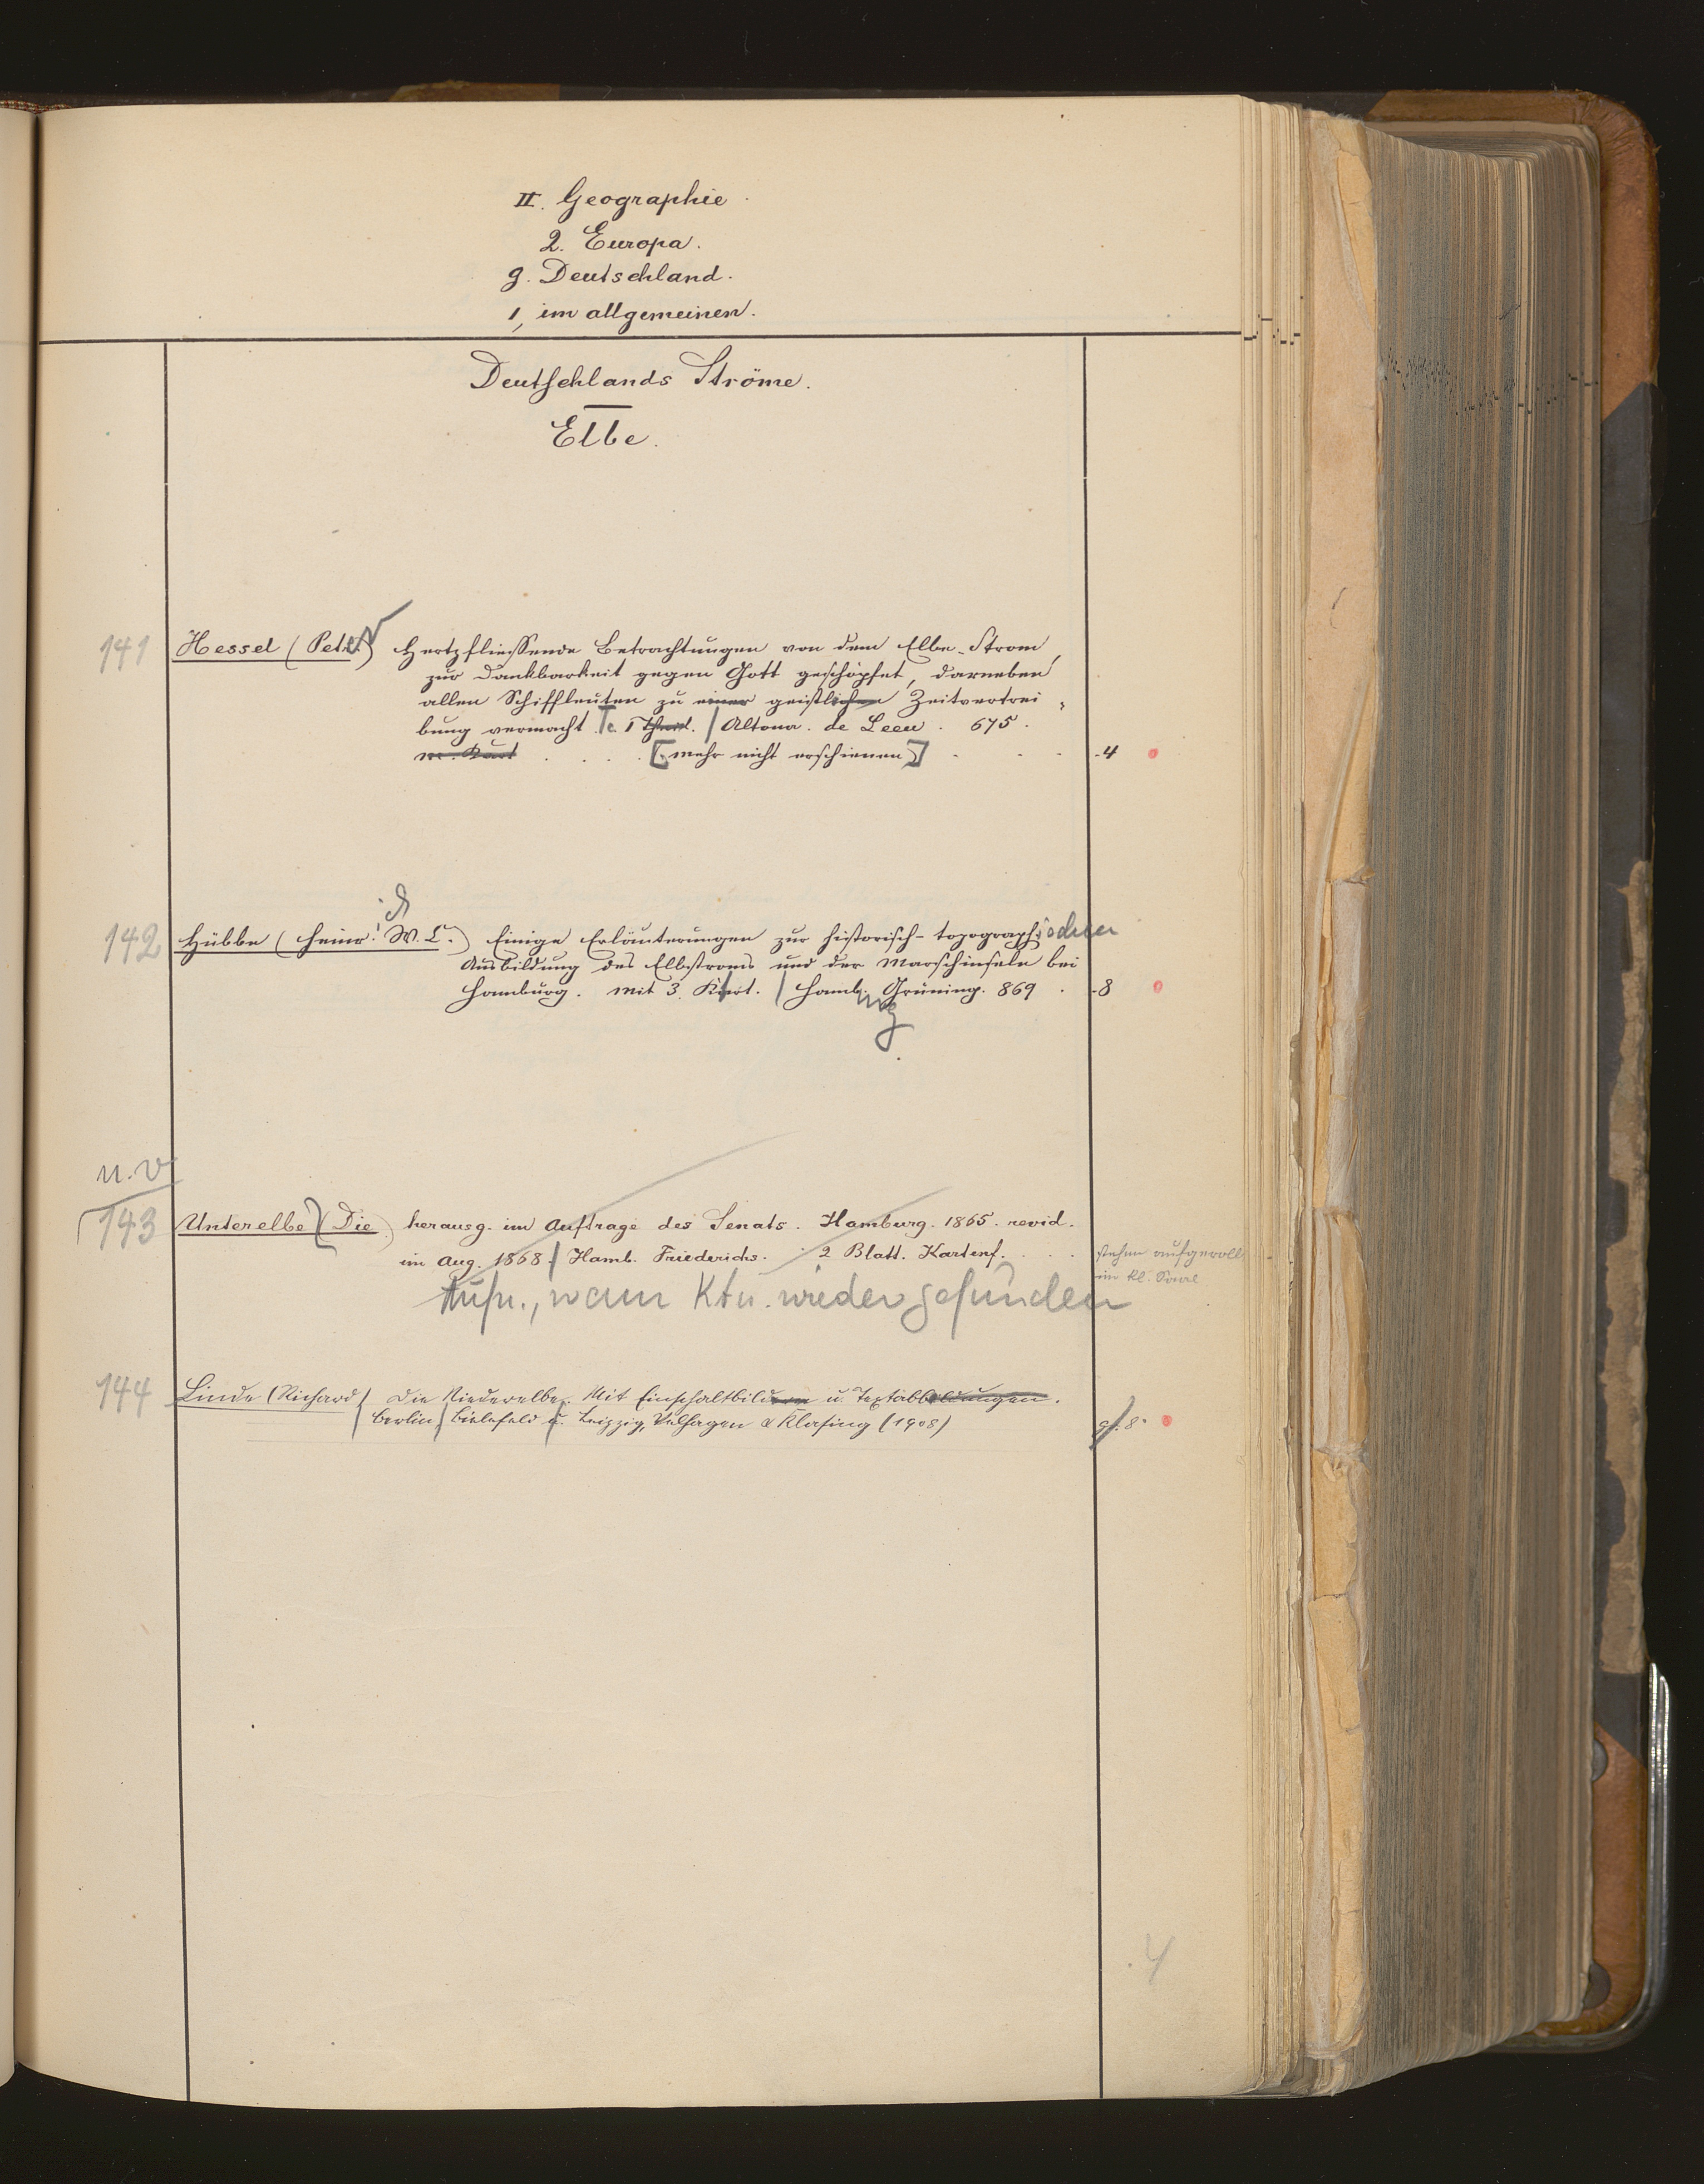 II. Geographie
2. Europa.
g. Deutschland.
1, im allgemeinen.
Deutschlands Ströme.
Elbe.
141 Hessel (Peter) Hertzfliessende Betrachtungen von dem Elbe-Strom,
zur Dankbarkeit gegen Gott geschöpfet, darneben
allen Schiffleuten zu einer geistlichen Zeitvertrei-
bung vermacht. 1 Theil. | Altona. de Leeu. 675.
m. Kart [mehr nicht erschienen] 4
142 Hübbe (Heinr. W. C.) Einige Erläuterungen zur historisch-topographischen
Ausbildung des Elbstroms und der Marschinseln bei
Hamburg. Mit 3 Kart. | Hamb. Grüning. 869. 8
n. v.
143 Unterelbe (Die) herausg. im Auftrage des Senats. Hamburg. 1865. revid.
im Aug. 1868. | Hamb. Friederichs. 2 Blatt. Kartenf. stehen aufgerollt
im kl. Saale
Aufn., wenn Ktn. wieder gefunden
144 Linde (Richard) Die Niederelbe. Mit Einschaltbildern u. Textabbildungen.
Berlin, Bielefeld u. Leipzig, Velhagen & Klasing (1908) gr. 8.
4